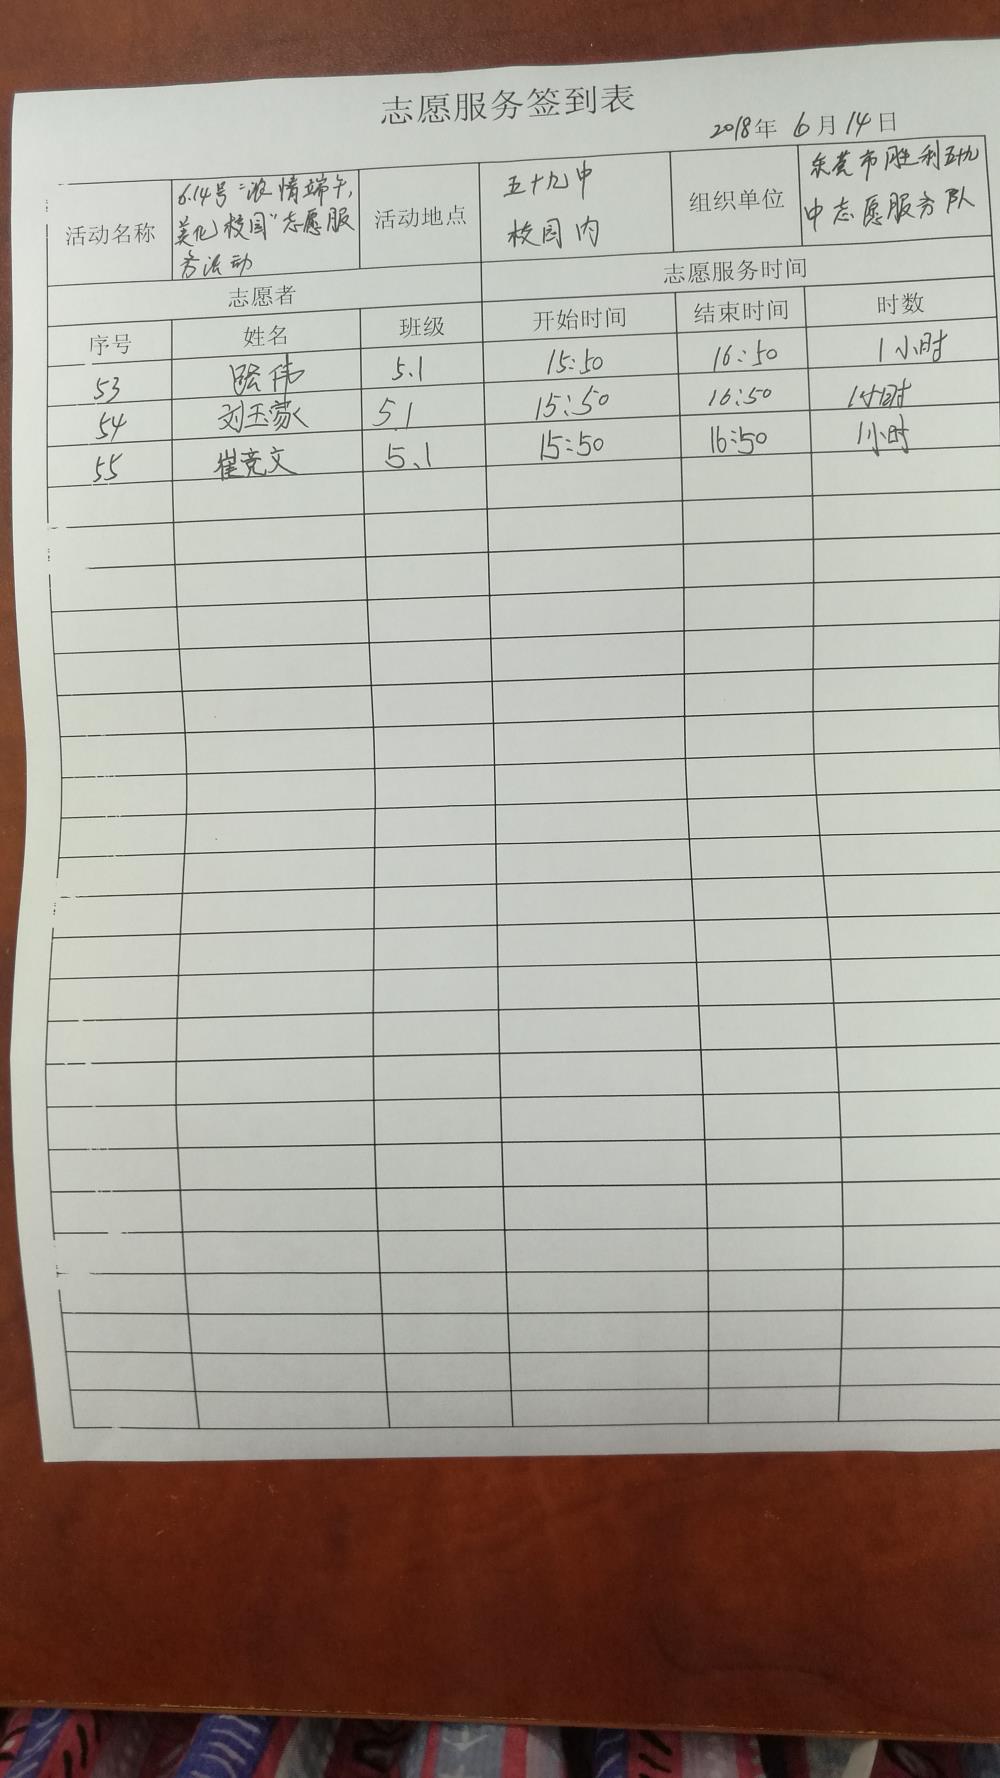 志愿服务签到表
2018年 6月14日
活动名称
6.14号"浓情端午,
美化校园"志愿服
务活动
活动地点
五十九中
校园内
组织单位
东营市胜利五十九
中志愿服务队
志愿者
志愿服务时间
序号 姓名 班级 开始时间 结束时间 时数
53 伟 5.1 15:50 16:50 1小时
54 刘玉蒙 5.1 15:50 16:50 1小时
55 崔竞文 5.1 15:50 16:50 1小时